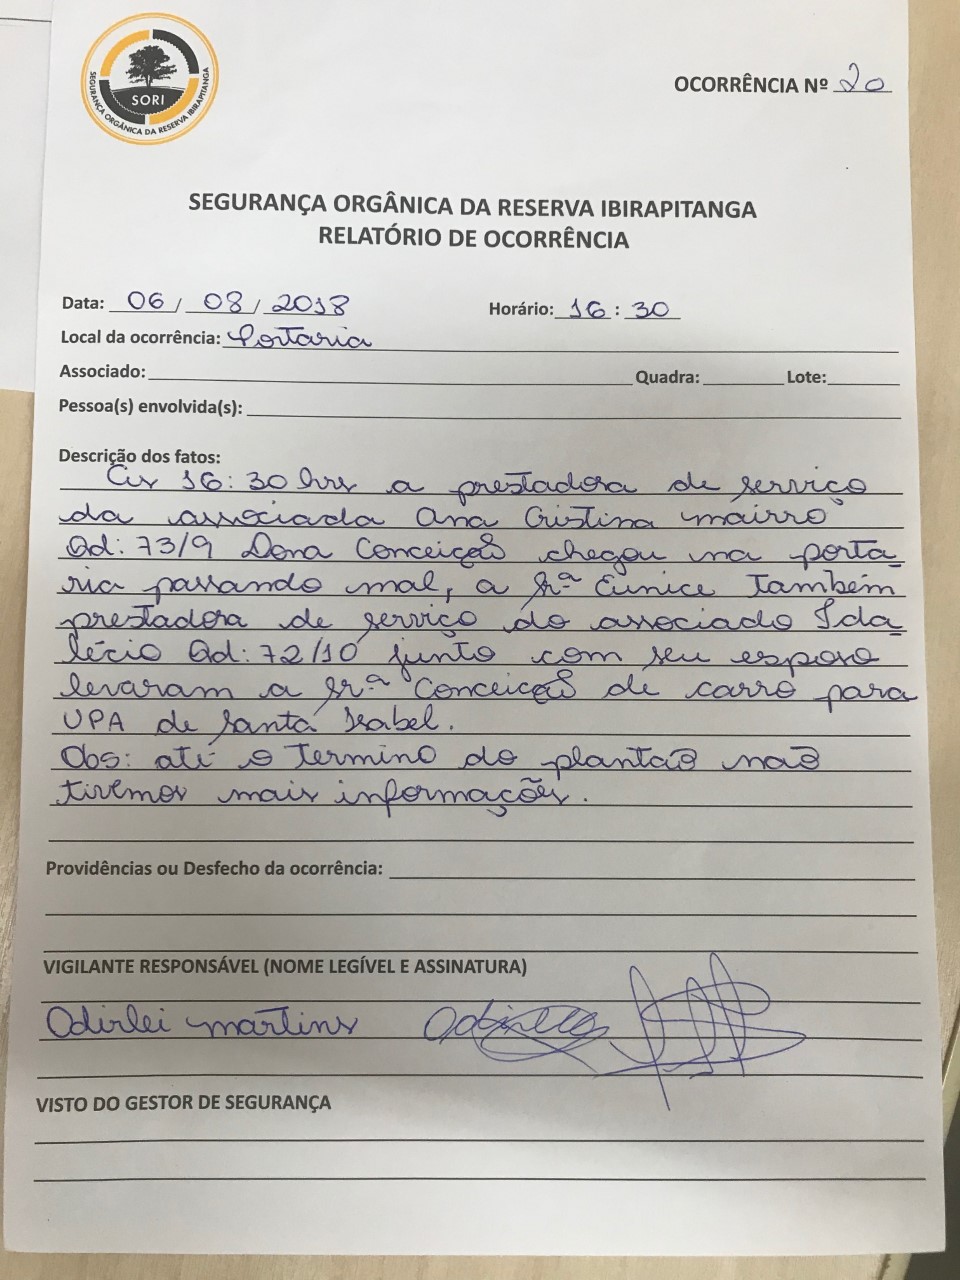 SORI
SEGURANÇA ORGÂNICA DA RESERVA IBIRAPITANGA
OCORRÊNCIA Nº 20
SEGURANÇA ORGÂNICA DA RESERVA IBIRAPITANGA
RELATÓRIO DE OCORRÊNCIA
Data: 06 / 08 / 2018 Horário: 16 : 30
Local da ocorrência: Portaria
Associado: Quadra: Lote:
Pessoa(s) envolvida(s):
Descrição dos fatos:
As 16:30 hrs a prestadora de serviço
da associada Ana Cristina mairro
Qd: 73/9 Dona Conceição chegou na porta
ria passando mal, a srª Eunice Também
prestadora de serviço do associado Ida
lécio Qd: 72/10 junto com seu esposo
levaram a srª Conceição de carro para
UPA de Santa Isabel.
Obs: até o termino do plantão não
tivemos mais informações.
Providências ou Desfecho da ocorrência:
VIGILANTE RESPONSÁVEL (NOME LEGÍVEL E ASSINATURA)
Odirlei martins
VISTO DO GESTOR DE SEGURANÇA